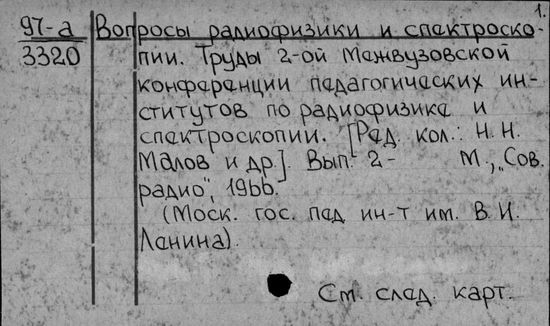 1.
97-а Вопросы радиофизики и спектроско-
3320 пии. Труды 2-ой Межвузовской
конференции педагогических ин-
ститутов по радиофизике и
спектроскопии. [Ред. кол.: Н. Н.
Малов и др.]. Вып. 2- М., „Сов.
радио", 1966.
(Моск. гос. пед ин-т им. В. И.
Ленина).
См. след. карт.